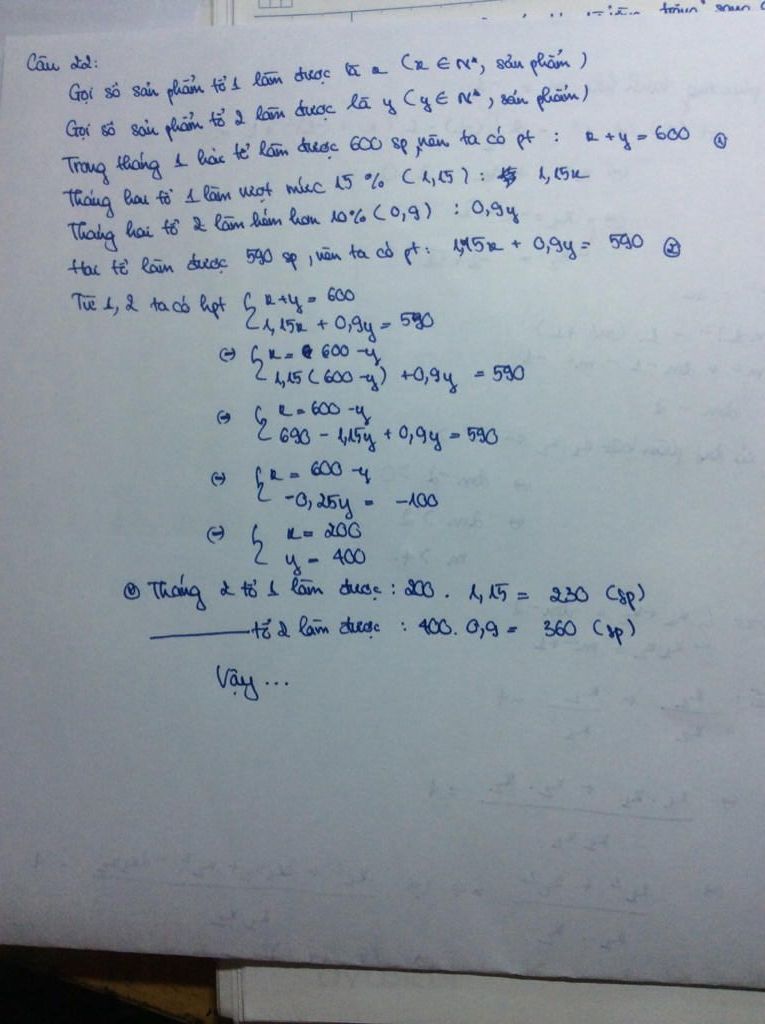 Câu 22:
Gọi số sản phẩm tổ 1 làm được là x (x ∈ N*, sản phẩm)
Gọi số sản phẩm tổ 2 làm được là y (y ∈ N*, sản phẩm)
Trong tháng 1 hai tổ làm được 600 sp, nên ta có pt : x + y = 600 (1)
Tháng hai tổ 1 làm vượt mức 15% (1,15) : 1,15x
Tháng hai tổ 2 làm kém hơn 10% (0,9) : 0,9y
Hai tổ làm được 590 sp, nên ta có pt: 1,15x + 0,9y = 590 (2)
Từ 1, 2 ta có hpt { x+y = 600
1,15x + 0,9y = 590
(=) { x = 600 - y
1,15(600 - y) + 0,9y = 590
(=) { x = 600 - y
690 - 1,15y + 0,9y = 590
(=) { x = 600 - y
-0,25y = -100
(=) { x = 200
y = 400
Tháng 2 tổ 1 làm được : 200 . 1,15 = 230 (sp)
tổ 2 làm được : 400. 0,9 = 360 (sp)
Vậy ...